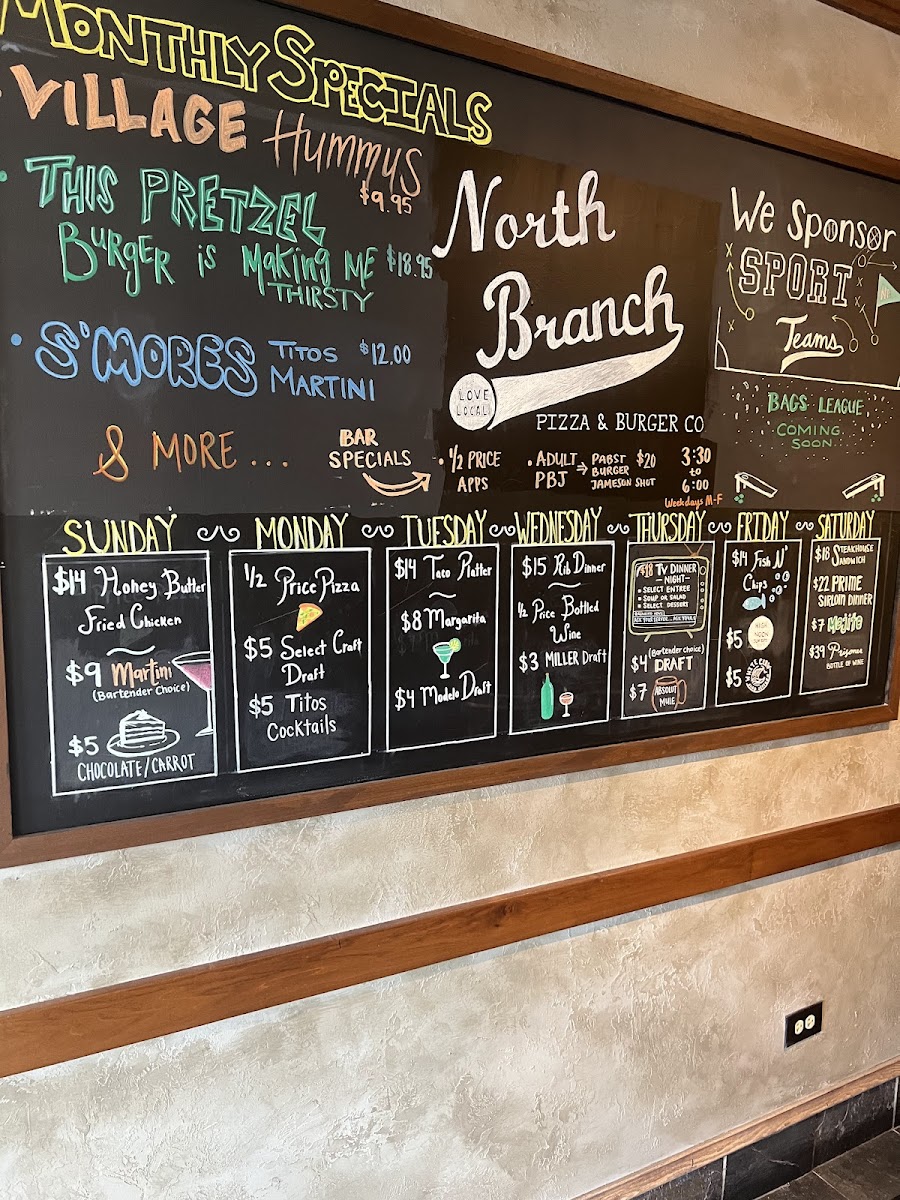 MONTHLY SPECIALS
VILLAGE HUMMUS
$9.95
• THIS PRETZEL
BURGER is MAKING ME $18.95
THIRSTY
• S'MORES TITOS $12.00
MARTINI
& MORE ...
BAR
SPECIALS
North
Branch
LOVE
LOCAL
PIZZA & BURGER CO
• 1/2 PRICE
APPS
• ADULT
PBJ
PABST
BURGER
JAMESON SHOT
$20
3:30
to
6:00
Weekdays M-F
We Sponsor
SPORT
Teams
BAGS LEAGUE
COMING
SOON
SUNDAY
$14 Honey Butter
Fried Chicken
$9 Martini
(Bartender Choice)
$5
CHOCOLATE/CARROT
MONDAY
1/2 Price Pizza
$5 Select Craft
Draft
$5 Titos
Cocktails
TUESDAY
$14 Taco Platter
$8 Margarita
$4 Modelo Draft
WEDNESDAY
$15 Rib Dinner
1/2 Price Bottled
Wine
$3 MILLER Draft
THURSDAY
$18 TV DINNER
– NIGHT –
• SELECT ENTREE
• SOUP OR SALAD
• SELECT DESSERT
(Bartender choice)
$4 DRAFT
$7 ABSOLUT
MULE
FRIDAY
$14 Fish N'
Chips
$5 HIGH
NOON
$5 WHITE CLAW
SATURDAY
$18 STEAKHOUSE
SANDWICH
$22 PRIME
SIRLOIN DINNER
$7 Mojito
$39 Prisoner
BOTTLE OF WINE